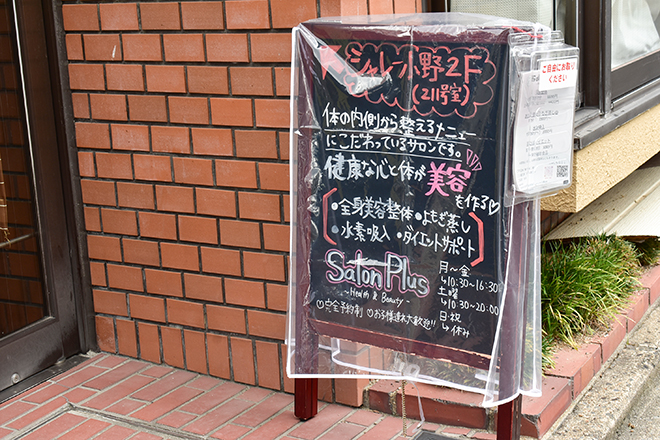 シャレー水野2F
(211号室)
体の内側から整えるメニュー
にこだわっているサロンです。
健康な心と体が美容を作る♡
•全身美容整体 •よもぎ蒸し
•水素吸入 •ダイエットサポート
Salon Plus
~Health & Beauty~
♡完全予約制 ♡お子様連れ大歓迎!!
月~金
↳10:30~16:30
土曜
↳10:30~20:00
日・祝
↳休み
ご自由にお取り
ください